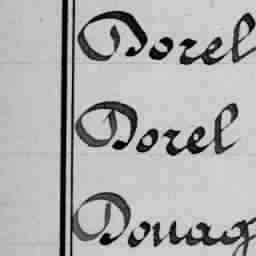 Dorel
Dorel
Douag